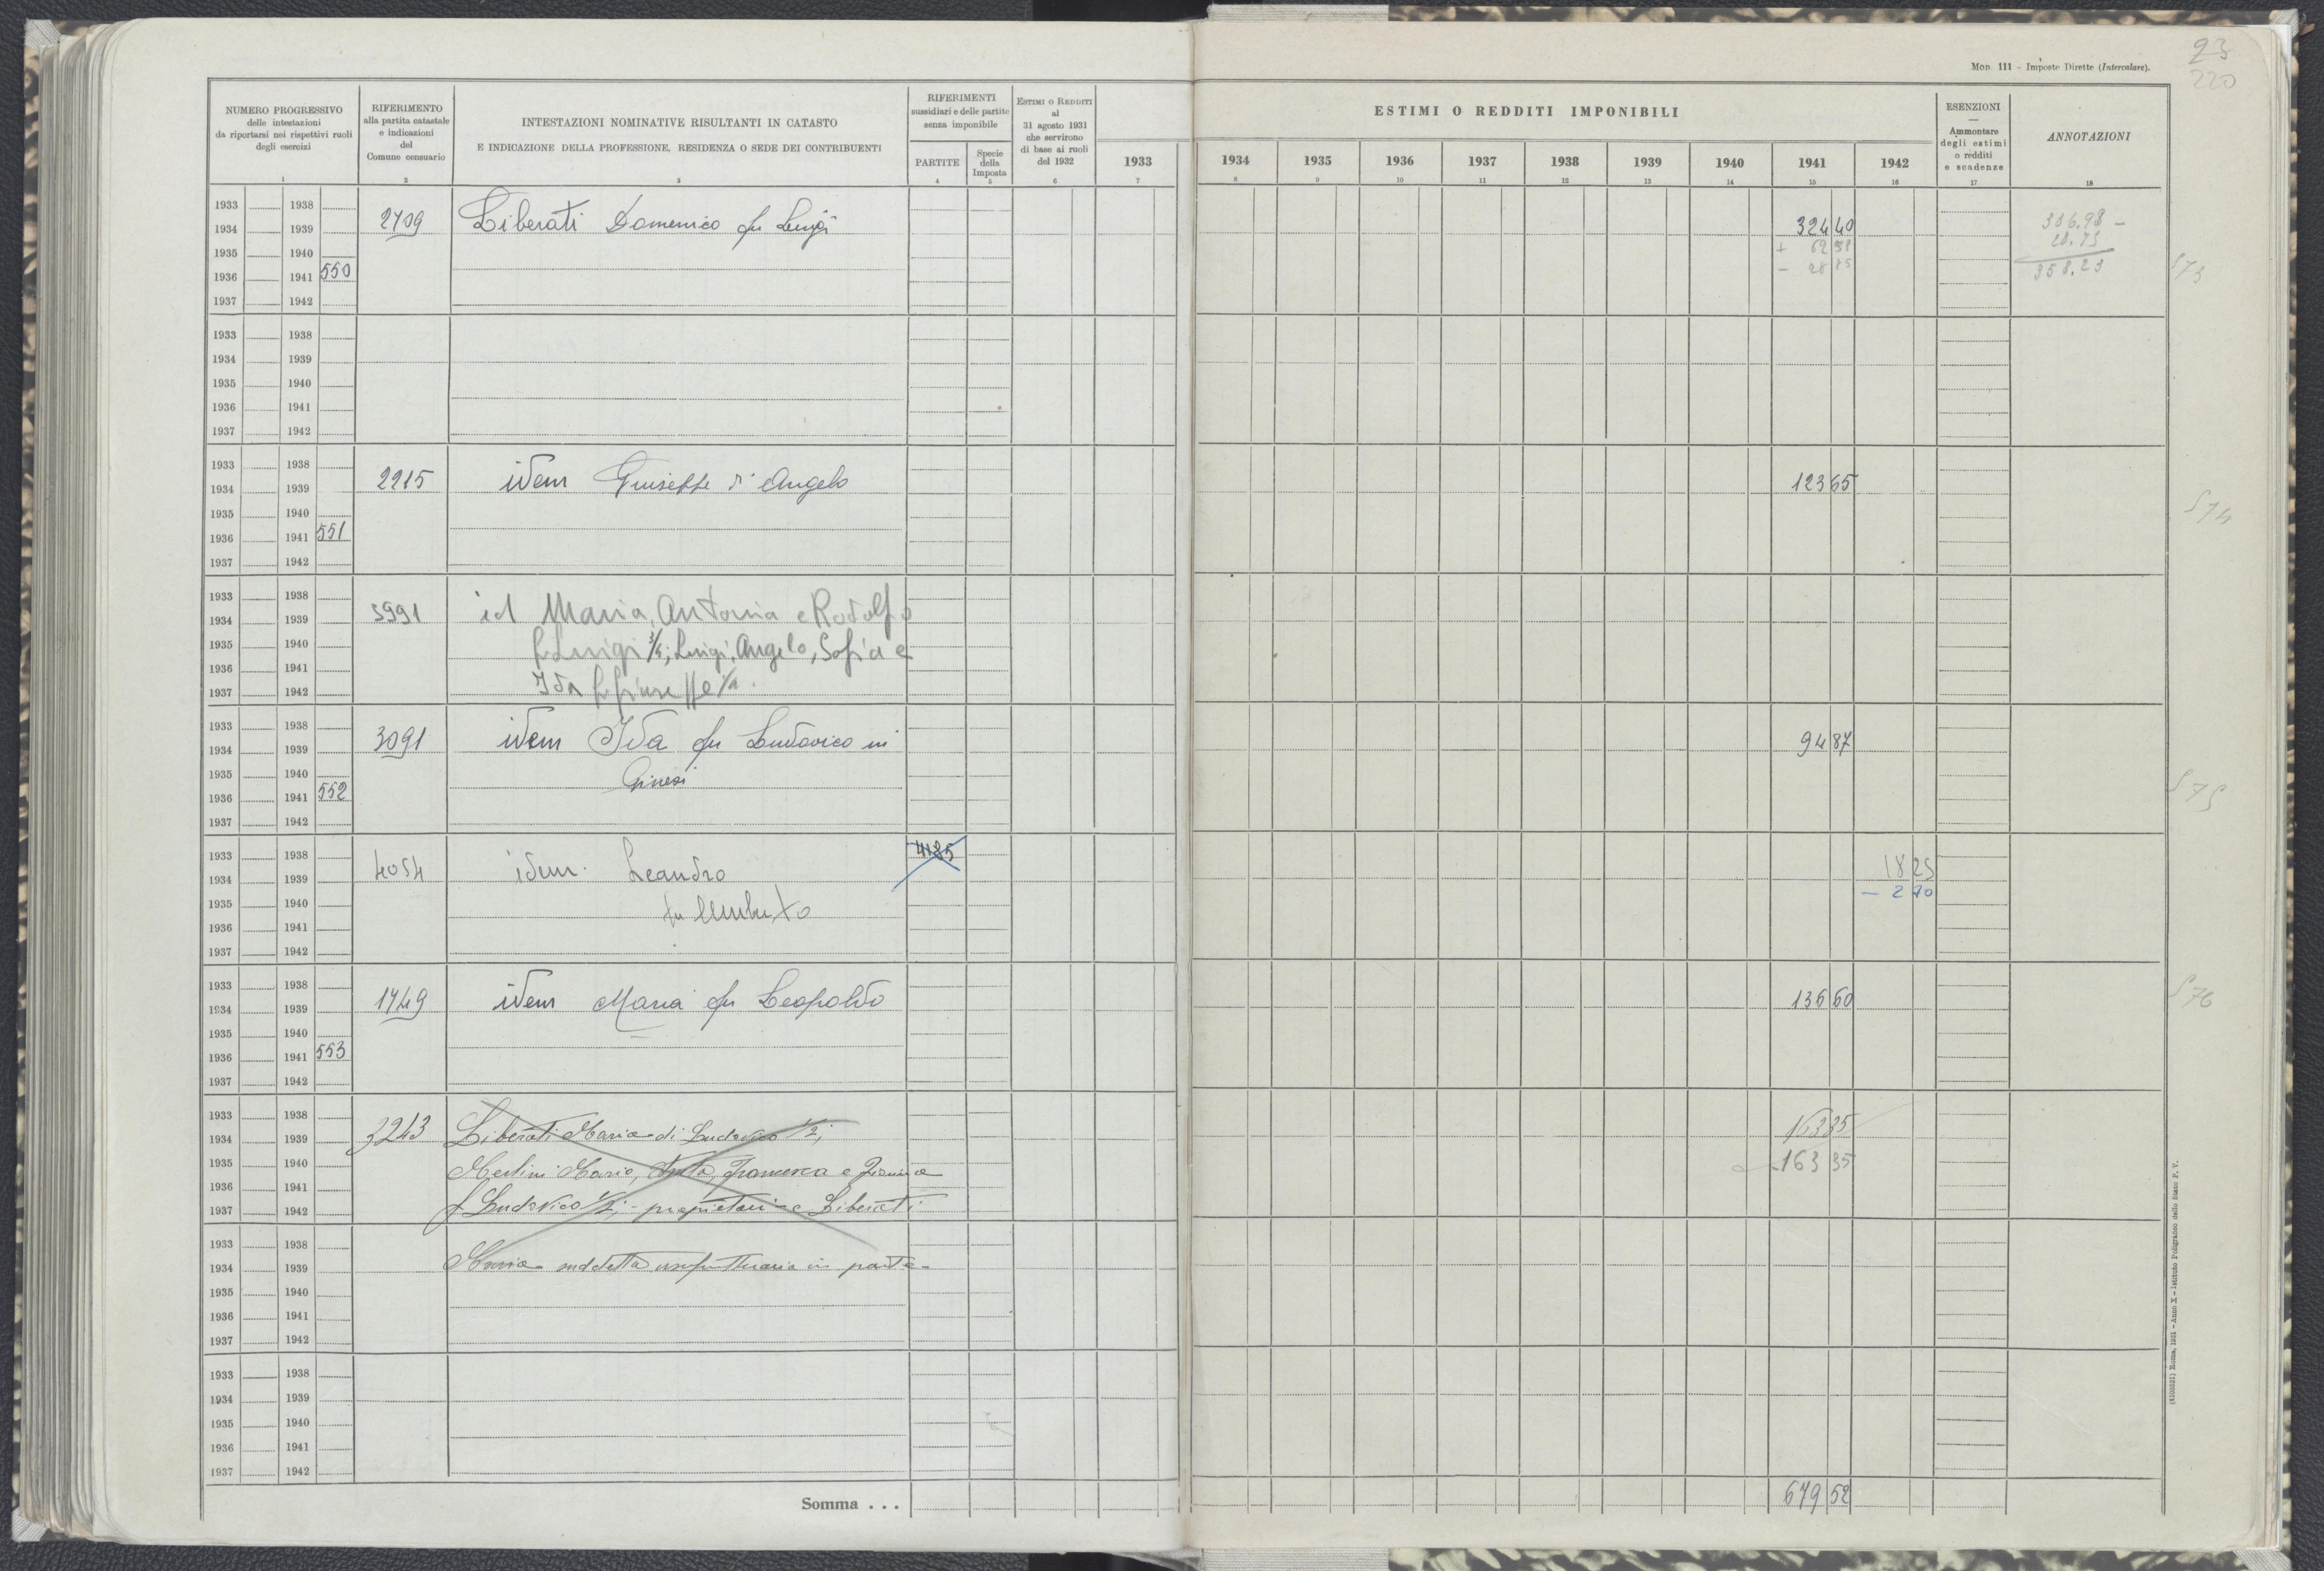 Mod. 111 - Imposte Dirette (Intercalare).
23
220
NUMERO PROGRESSIVO
delle intestazioni
da riportarsi nei rispettivi ruoli
degli esercizi
1
RIFERIMENTO
alla partita catastale
e indicazioni
del
Comune censuario
2
INTESTAZIONI NOMINATIVE RISULTANTI IN CATASTO
E INDICAZIONE DELLA PROFESSIONE, RESIDENZA O SEDE DEI CONTRIBUENTI
3
RIFERIMENTI
sussidiari e delle partite
senza imponibile
PARTITE
4
Specie
della
Imposta
5
Estimi o Redditi
al
31 agosto 1931
che servirono
di base ai ruoli
del 1932
6
1933
7
ESTIMI O REDDITI IMPONIBILI
1934 1935 1936 1937 1938 1939 1940 1941 1942
8 9 10 11 12 13 14 15 16
ESENZIONI
—
Ammontare
degli estimi
o redditi
e scadenze
17
ANNOTAZIONI
18
1933 1938
1934 1939 2709 Liberati Domenico fu Luigi 324 40
1935 1940
1936 1941 550
1937 1942
358.23
573
1933 1938
1934 1939
1935 1940
1936 1941
1937 1942
1933 1938
1934 1939 2215 idem Giuseppe d'Angelo 123 65
1935 1940
1936 1941 551
1937 1942
574
1933 1938
1934 1939 3991 id Maria, Antonia e Rodolfo
1935 1940 fu Luigi 3/4; Luigi, Angelo, Sofia e
1936 1941
1937 1942 Ida fu Giuseppe 1/4.
1933 1938
1934 1939 3091 idem Ida fu Ludovico in 94 87
1935 1940 Ginesi
1936 1941 552
1937 1942
575
1933 1938 4185
1934 1939 4054 idem Leandro 18 25
1935 1940 fu Umberto - 2 70
1936 1941
1937 1942
1933 1938
1934 1939 1749 idem Maria fu Leopoldo 136 60
1935 1940
1936 1941 553
1937 1942
576
1933 1938
1934 1939 3243 Liberati Maria di Ludovico 1/2; 163 35
1935 1940 Merlini Maria, Francesca e - 163 35
1936 1941
1937 1942 f Ludovico 1/2; - proprietari e Liberati
1933 1938
1934 1939 Maria suddetta usufruttuaria in parte -
1935 1940
1936 1941
1937 1942
1933 1938
1934 1939
1935 1940
1936 1941
1937 1942
Somma . . . 679 52